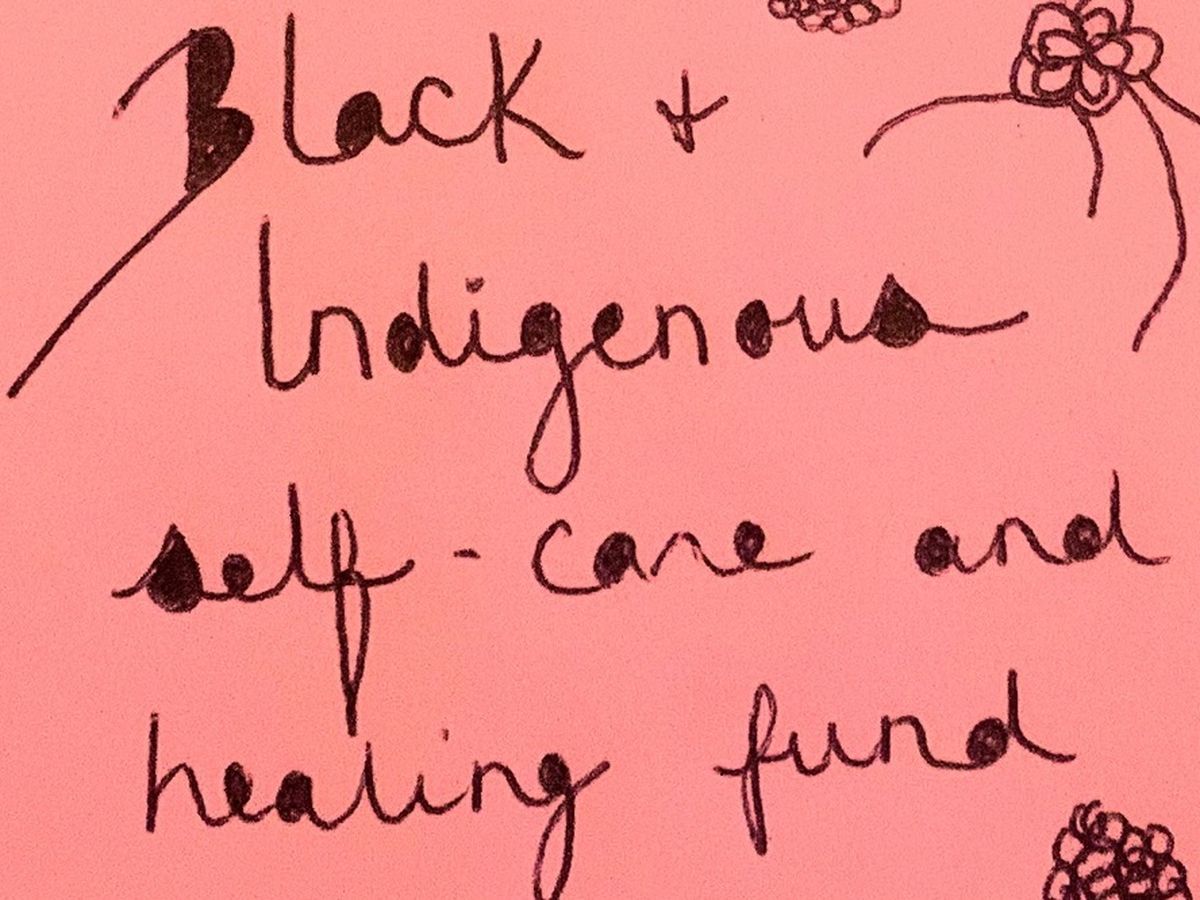 Black +
Indigenous
self-care and
healing fund